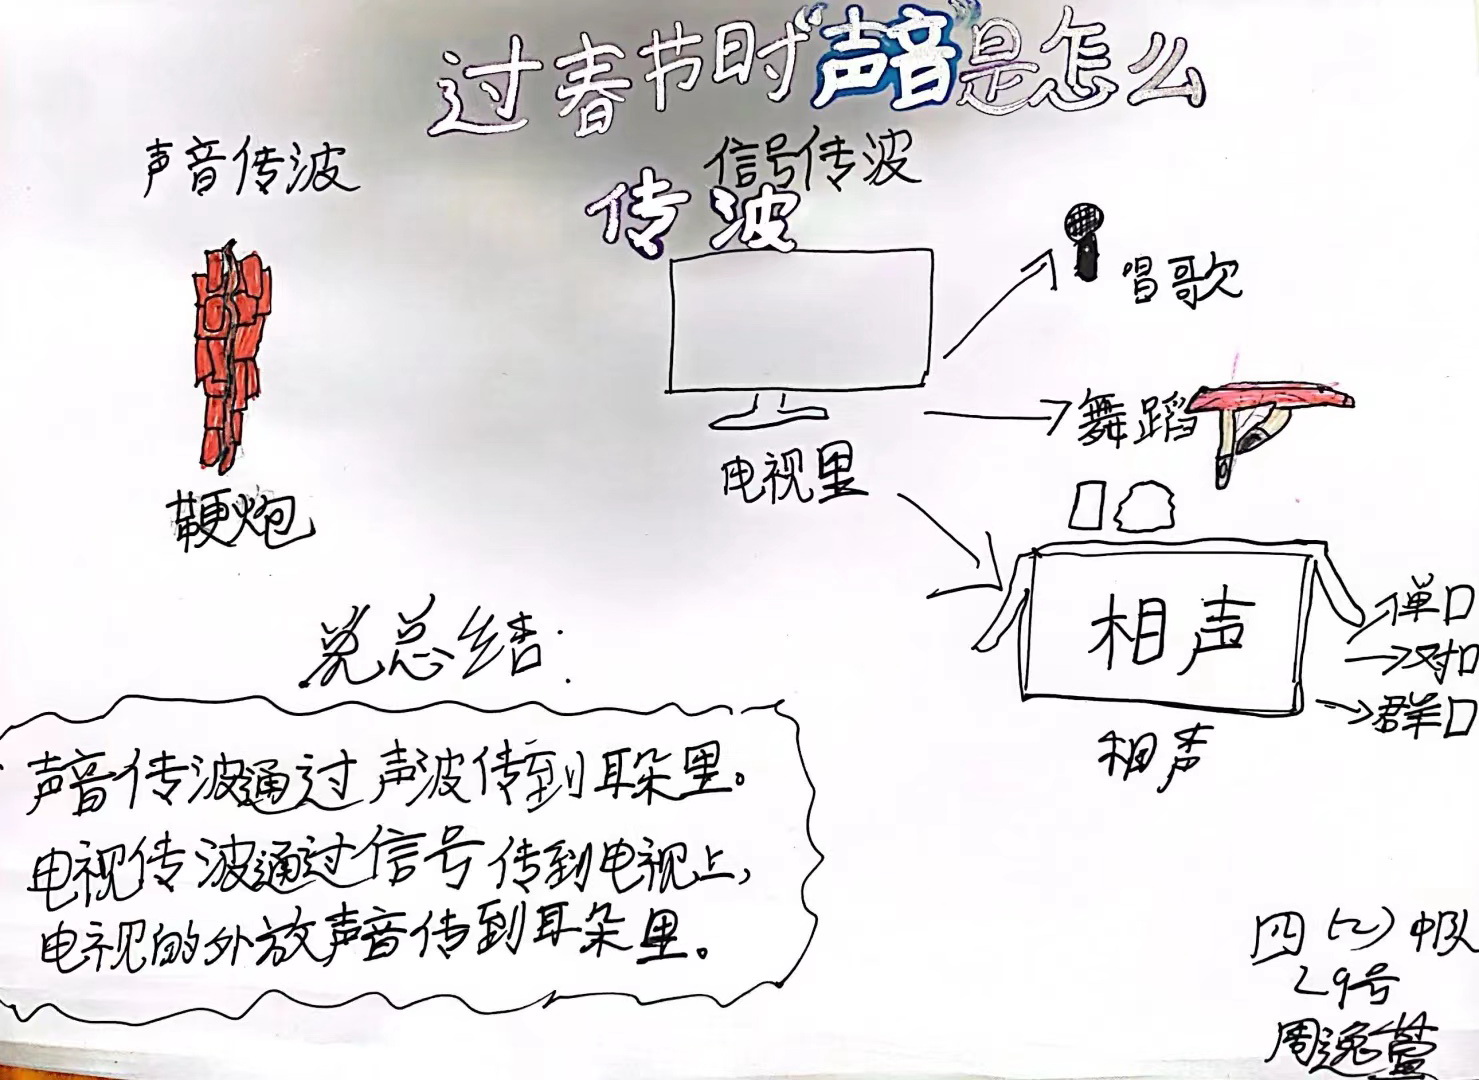 过春节时“声音”是怎么
传波
声音传波
鞭炮
信号传波
电视里
唱歌
舞蹈
相声
相声
单口
对口
群口
总结:
声音传波通过声波传到耳朵里。
电视传波通过信号传到电视上,
电视的外放声音传到耳朵里。
四(2)中队
29号
周逸萱